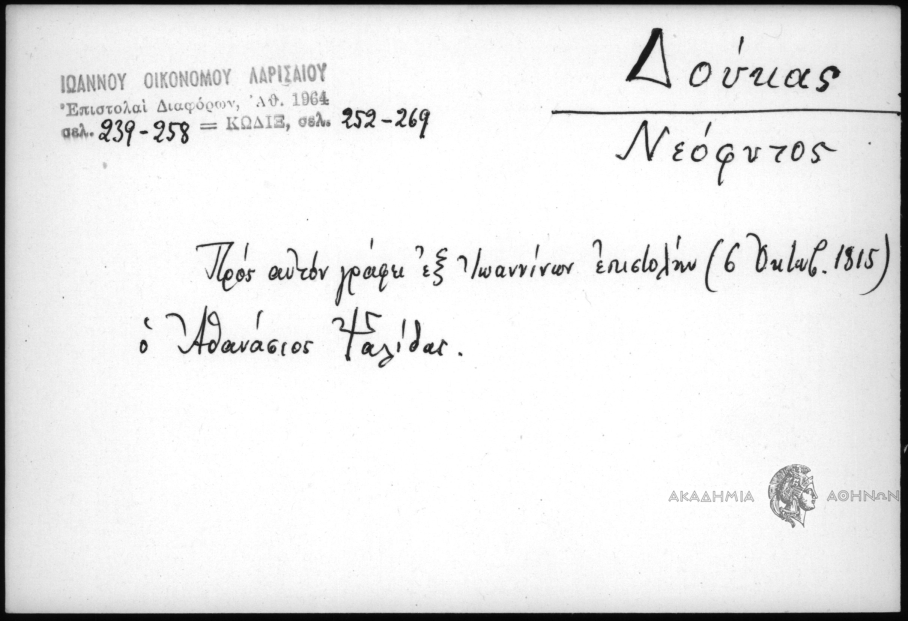 ΙΩΑΝΝΟΥ ΟΙΚΟΝΟΜΟΥ ΛΑΡΙΣΑΙΟΥ
Ἐπιστολαὶ Διαφόρων, Ἀθ. 1964
σελ. 239-258 = ΚΩΔΙΞ, σελ. 252-269
Δούκας
Νεόφυτος
Πρός αὐτόν γράφει ἐξ Ἰωαννίνων ἐπιστολήν (6 Ὀκτωβ. 1815)
ὁ Ἀθανάσιος Ψαλίδας.
ΑΚΑΔΗΜΙΑ ΑΘΗΝΩΝ